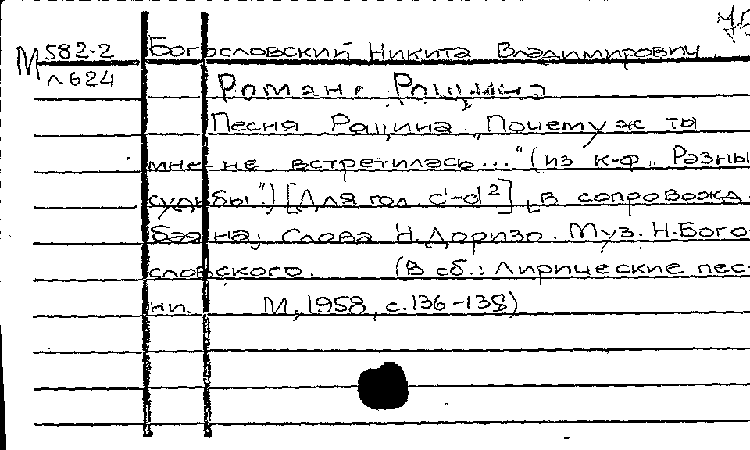 75
М 582-2
л 624
Богословский Никита Владимирович
Романс Рощина
Песня Рощина „Почему ж ты
мне не встретилась..." (из к-ф „Разны
судьбы") [Для гол. c'-d²], в сопровожд.
баяна, Слова Н.Доризо. Муз. Н.Бого-
словского. (В сб.: Лирические пес-
ни. М, 1958, с.136-138)